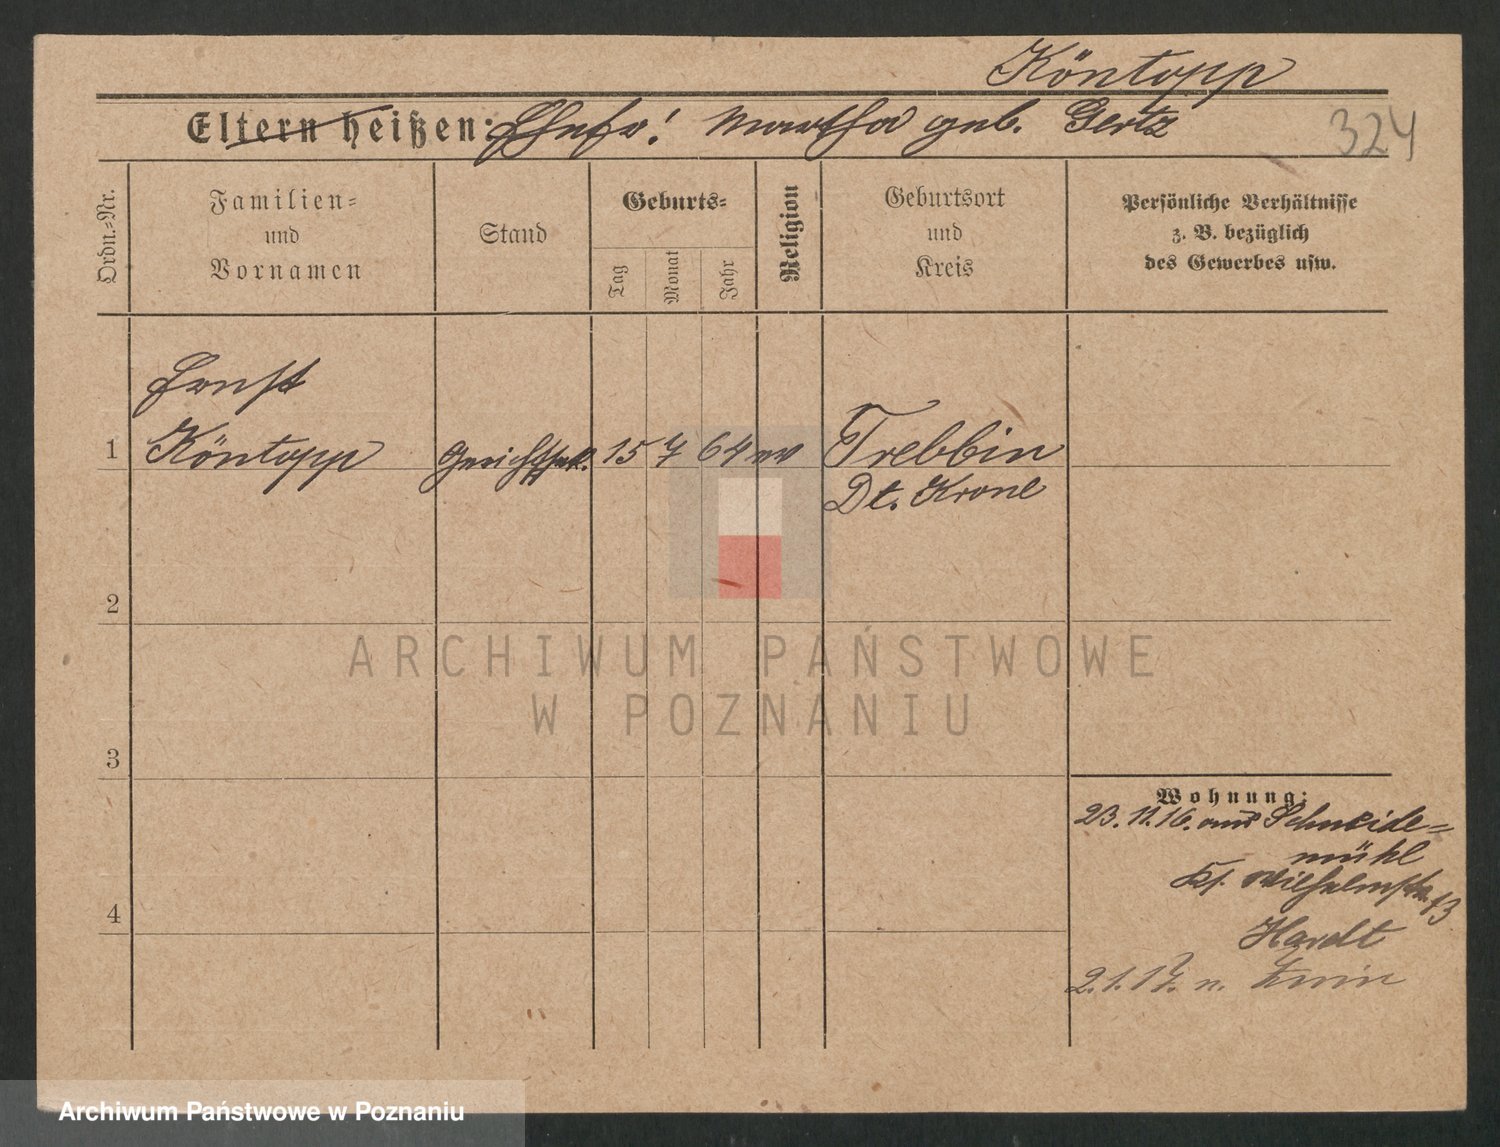 Köntopp
Eltern heißen: Ehefr: Martha geb. Gertz
324
Ordn.-Nr.
Familien-
und
Vornamen
Stand
Geburts-
Tag
Monat
Jahr
Religion
Geburtsort
und
Kreis
Persönliche Verhältnisse
z. B. bezüglich
des Gewerbes usw.
Ernst
1 Köntopp Gerichtssekr. 15 7 64 ev Trebbin
Dt. Krone
2
ARCHIWUM PAŃSTWOWE
W POZNANIU
3
Wohnung:
23. 11. 16. aus Schneide-
mühl
Kl. Wilhelmstr. 13
4
Hardt
2. 1. 17. n.
Archiwum Państwowe w Poznaniu